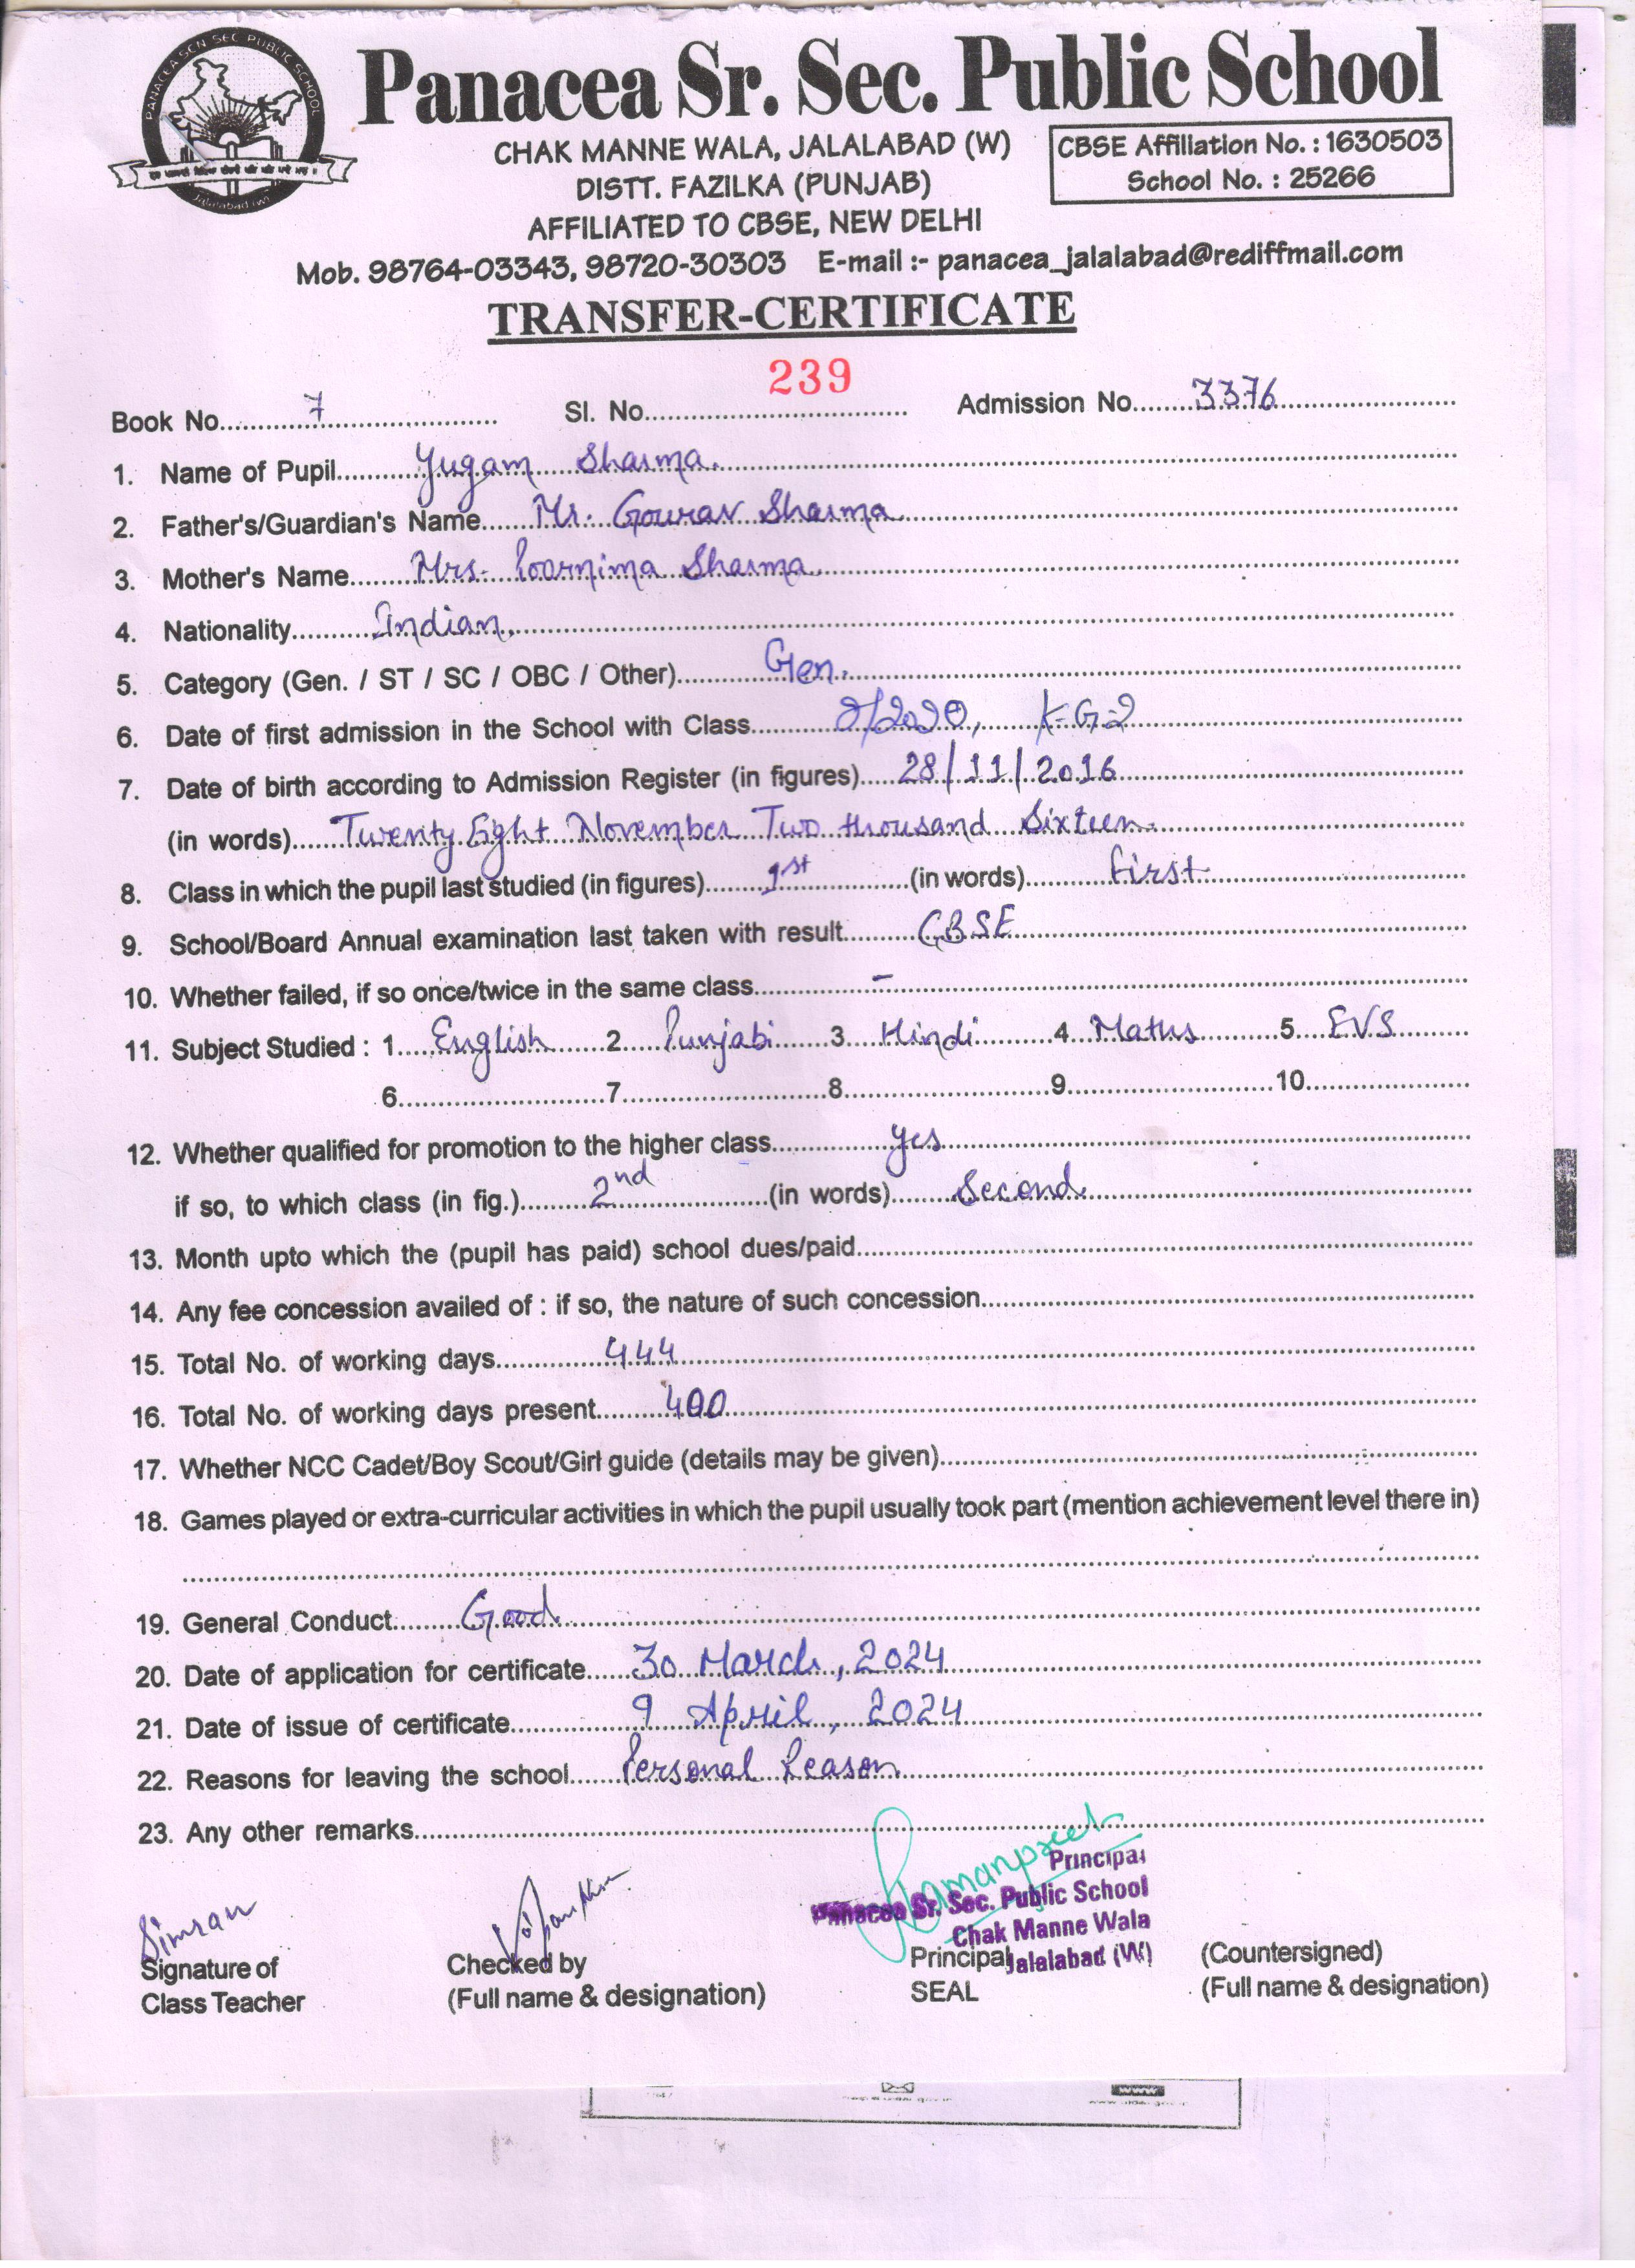 PANACEA SCN SEC PUBLIC SCHOOL
Jalalabad (W)
Panacea Sr. Sec. Public School
CHAK MANNE WALA, JALALABAD (W)
DISTT. FAZILKA (PUNJAB)
AFFILIATED TO CBSE, NEW DELHI
CBSE Affiliation No. : 1630503
School No. : 25266
Mob. 98764-03343, 98720-30303 E-mail :- panacea_jalalabad@rediffmail.com
TRANSFER-CERTIFICATE
Book No. 7 Sl. No. 239 Admission No. 3376
1. Name of Pupil Yugam Sharma.
2. Father's/Guardian's Name Mr. Gourav Sharma
3. Mother's Name Mrs. Poornima Sharma
4. Nationality Indian
5. Category (Gen. / ST / SC / OBC / Other) Gen.
6. Date of first admission in the School with Class /2020, K-G-2
7. Date of birth according to Admission Register (in figures) 28/11/2016
(in words) Twenty Eight November Two thousand Sixteen.
8. Class in which the pupil last studied (in figures) 1st (in words) First
9. School/Board Annual examination last taken with result CBSE
10. Whether failed, if so once/twice in the same class -
11. Subject Studied : 1. English 2. Punjabi 3. Hindi 4. Maths 5. EVS
6. 7. 8. 9. 10.
12. Whether qualified for promotion to the higher class yes
if so, to which class (in fig.) 2nd (in words) Second
13. Month upto which the (pupil has paid) school dues/paid
14. Any fee concession availed of : if so, the nature of such concession
15. Total No. of working days 444
16. Total No. of working days present 400
17. Whether NCC Cadet/Boy Scout/Girl guide (details may be given)
18. Games played or extra-curricular activities in which the pupil usually took part (mention achievement level there in)
19. General Conduct Good
20. Date of application for certificate 30 March, 2024
21. Date of issue of certificate 9 April, 2024
22. Reasons for leaving the school Personal Reason
23. Any other remarks
Simran
Ramanpreet
Principal
Panacea Sr. Sec. Public School
Chak Manne Wala
Jalalabad (W)
Signature of Checked by Principal (Countersigned)
Class Teacher (Full name & designation) SEAL (Full name & designation)
www